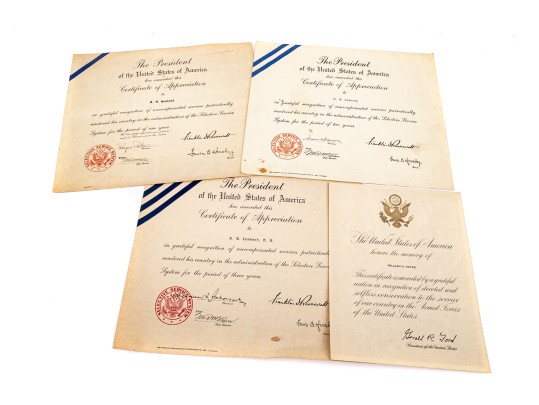 The President
of the United States of America
has awarded this
Certificate of Appreciation
to
in grateful recognition of uncompensated services patriotically
rendered his country in the administration of the Selective Service
System for the period of one year
Franklin D. Roosevelt
Lewis B. Hershey
The President
of the United States of America
has awarded this
Certificate of Appreciation
to
in grateful recognition of uncompensated services patriotically
rendered his country in the administration of the Selective Service
System for the period of two years
Franklin D. Roosevelt
Lewis B. Hershey
The President
of the United States of America
has awarded this
Certificate of Appreciation
to
in grateful recognition of uncompensated services patriotically
rendered his country in the administration of the Selective Servi
System for the period of three years
SELECTIVE SERVICE SYSTEM
Franklin D. Roosevelt
Lewis B. Hershey
The United States of America
honors the memory of
This certificate is awarded by a grateful
nation in recognition of devoted and
selfless consecration to the service
of our country in the Armed Forces
of the United States
Gerald R. Ford
President of the United States